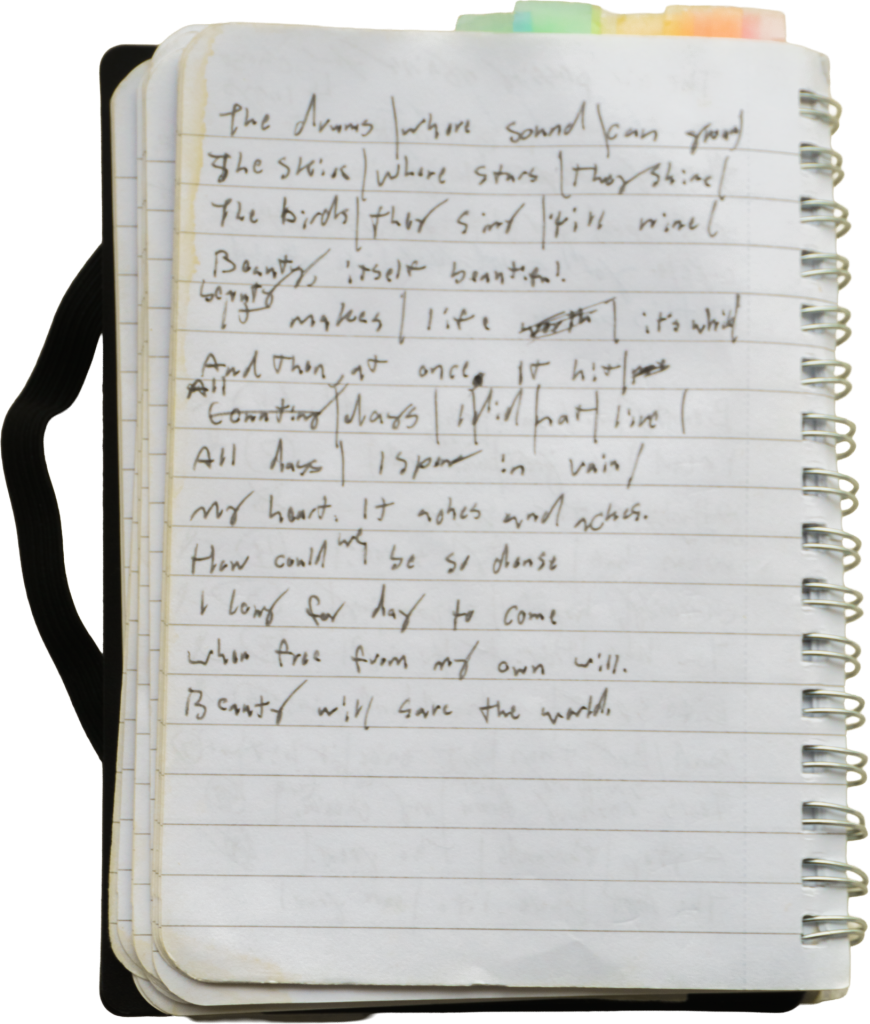 The drums | where sound | can
The skies | where stars | they shine |
The birds | they sing | till mine |
Beauty, itself beautiful.
beauty
It makes | life worth | it's whil
And then at once. It hit |
All
Counting | days | I did | not | live |
All days | I spent in vain /
my heart. It aches and aches.
How could we be so dense
I long for day to come
when free from my own will.
Beauty will save the world.